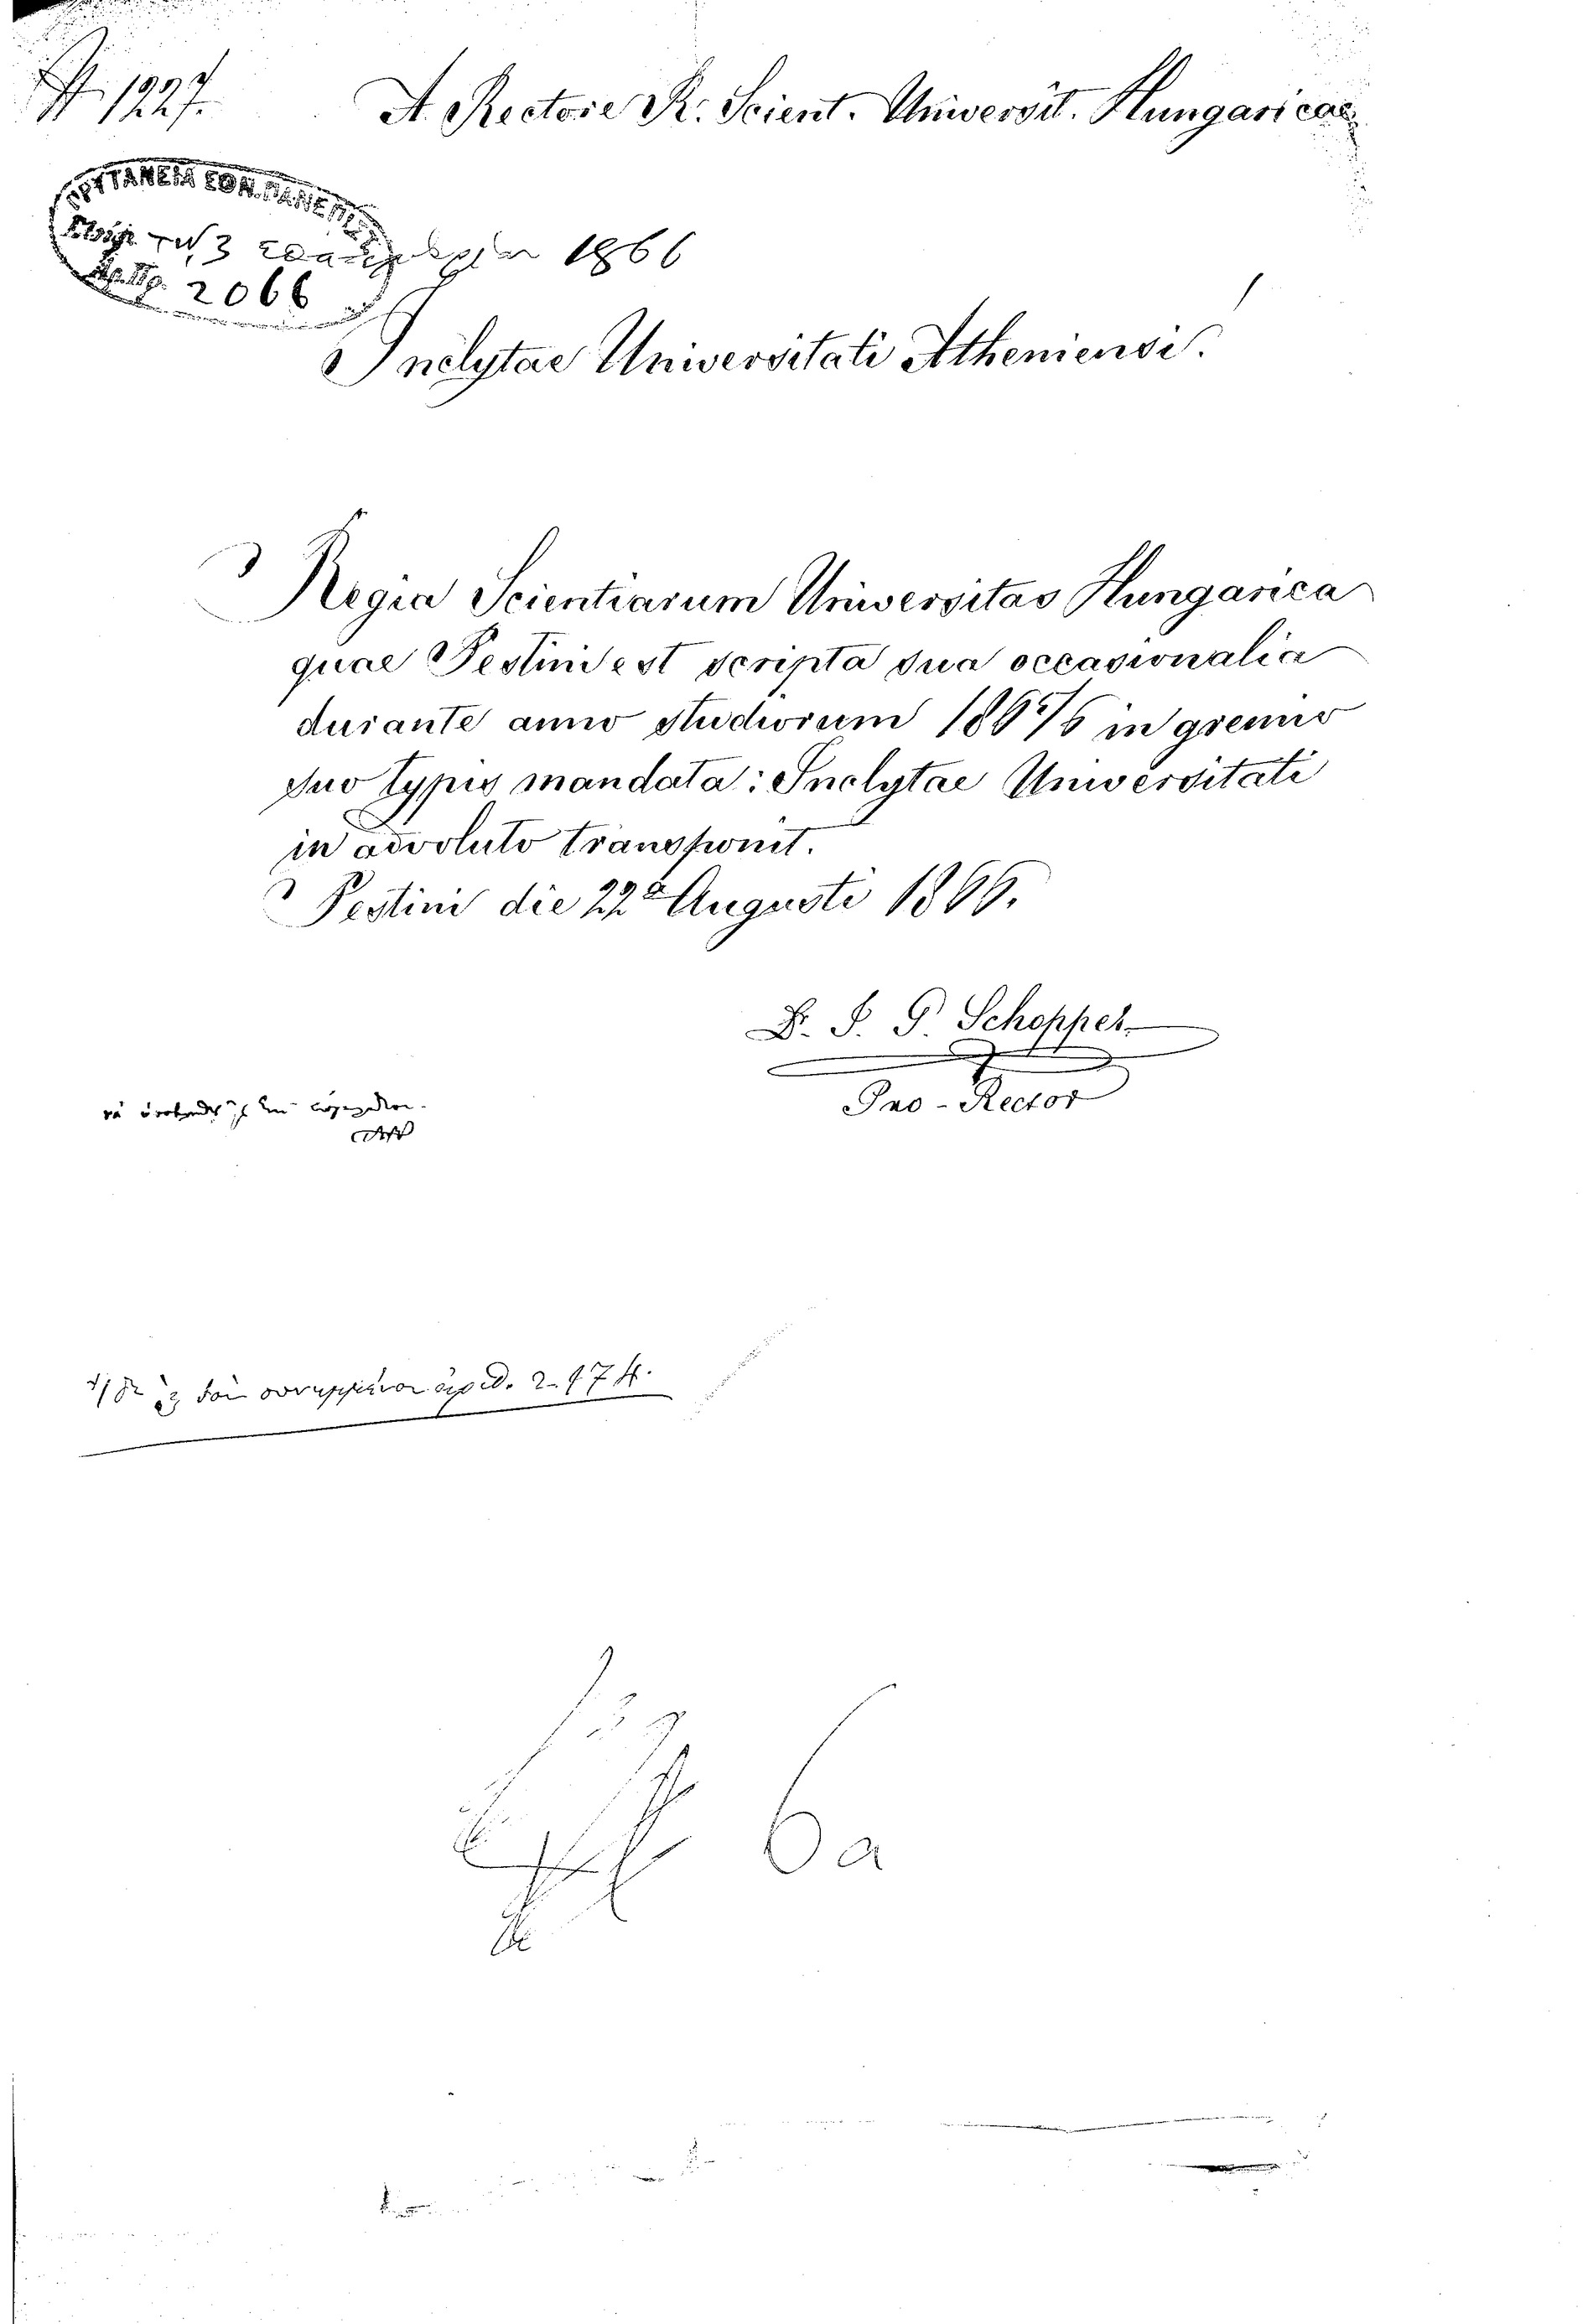 № 1227.
A Rectore R. Scient. Universit. Hungaricae
ΠΡΥΤΑΝΕΙΑ ΤΟΥ ΠΑΝΕΠΙΣ
τῇ 3 1866
2066
Inclytae Universitati Atheniensi!
Regia Scientiarum Universitas Hungarica
quae Pestini est scripta sua occasionalia
durante anno studiorum 1865/6 in gremio
suo typis mandata: Inclytae Universitati
in advoluto transponit.
Pestini die 22ª Augusti 1866.
Dr. J. P. Schopper
Pro-Rector
νὰ
συνημμένον ἀριθ. 2174.
6a